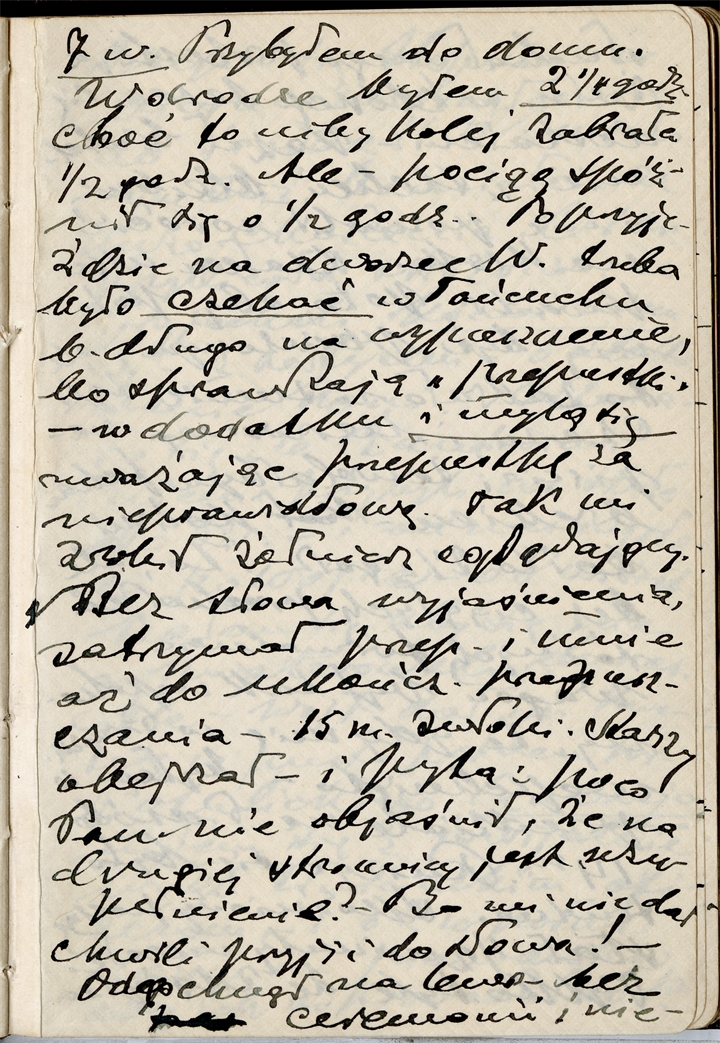 7 w. Przybyłem do domu.
W drodze byłem 2 1/4 godz.
choć to niby kolej zabrała
1/2 godz. Ale – pociąg spóź-
nił się o 1/2 godz.. Po przyje-
ździe na dworzec W. trzeba
było czekać w łańcuchu
b. długo na wypuszczenie,
bo sprawdzają przepustki.
– w dodatku i mylą się
uważając przepustkę za
nieprawidłową. Tak mi
zrobił żołnierz oglądający.
Bez słowa wyjaśnienia,
zatrzymał przep. i mnie
aż do ukończ. przepusz-
czania – 15 m. zwłoki. Starszy
obejrzał – i pyta: poco
Pan nie objaśnił, że na
drugiej stronicy jest uzu-
pełnienie? – Bo mi nie dał
chwili przyjść do słowa! –
Odepchnął na lewo bez
ceremonii i nie-